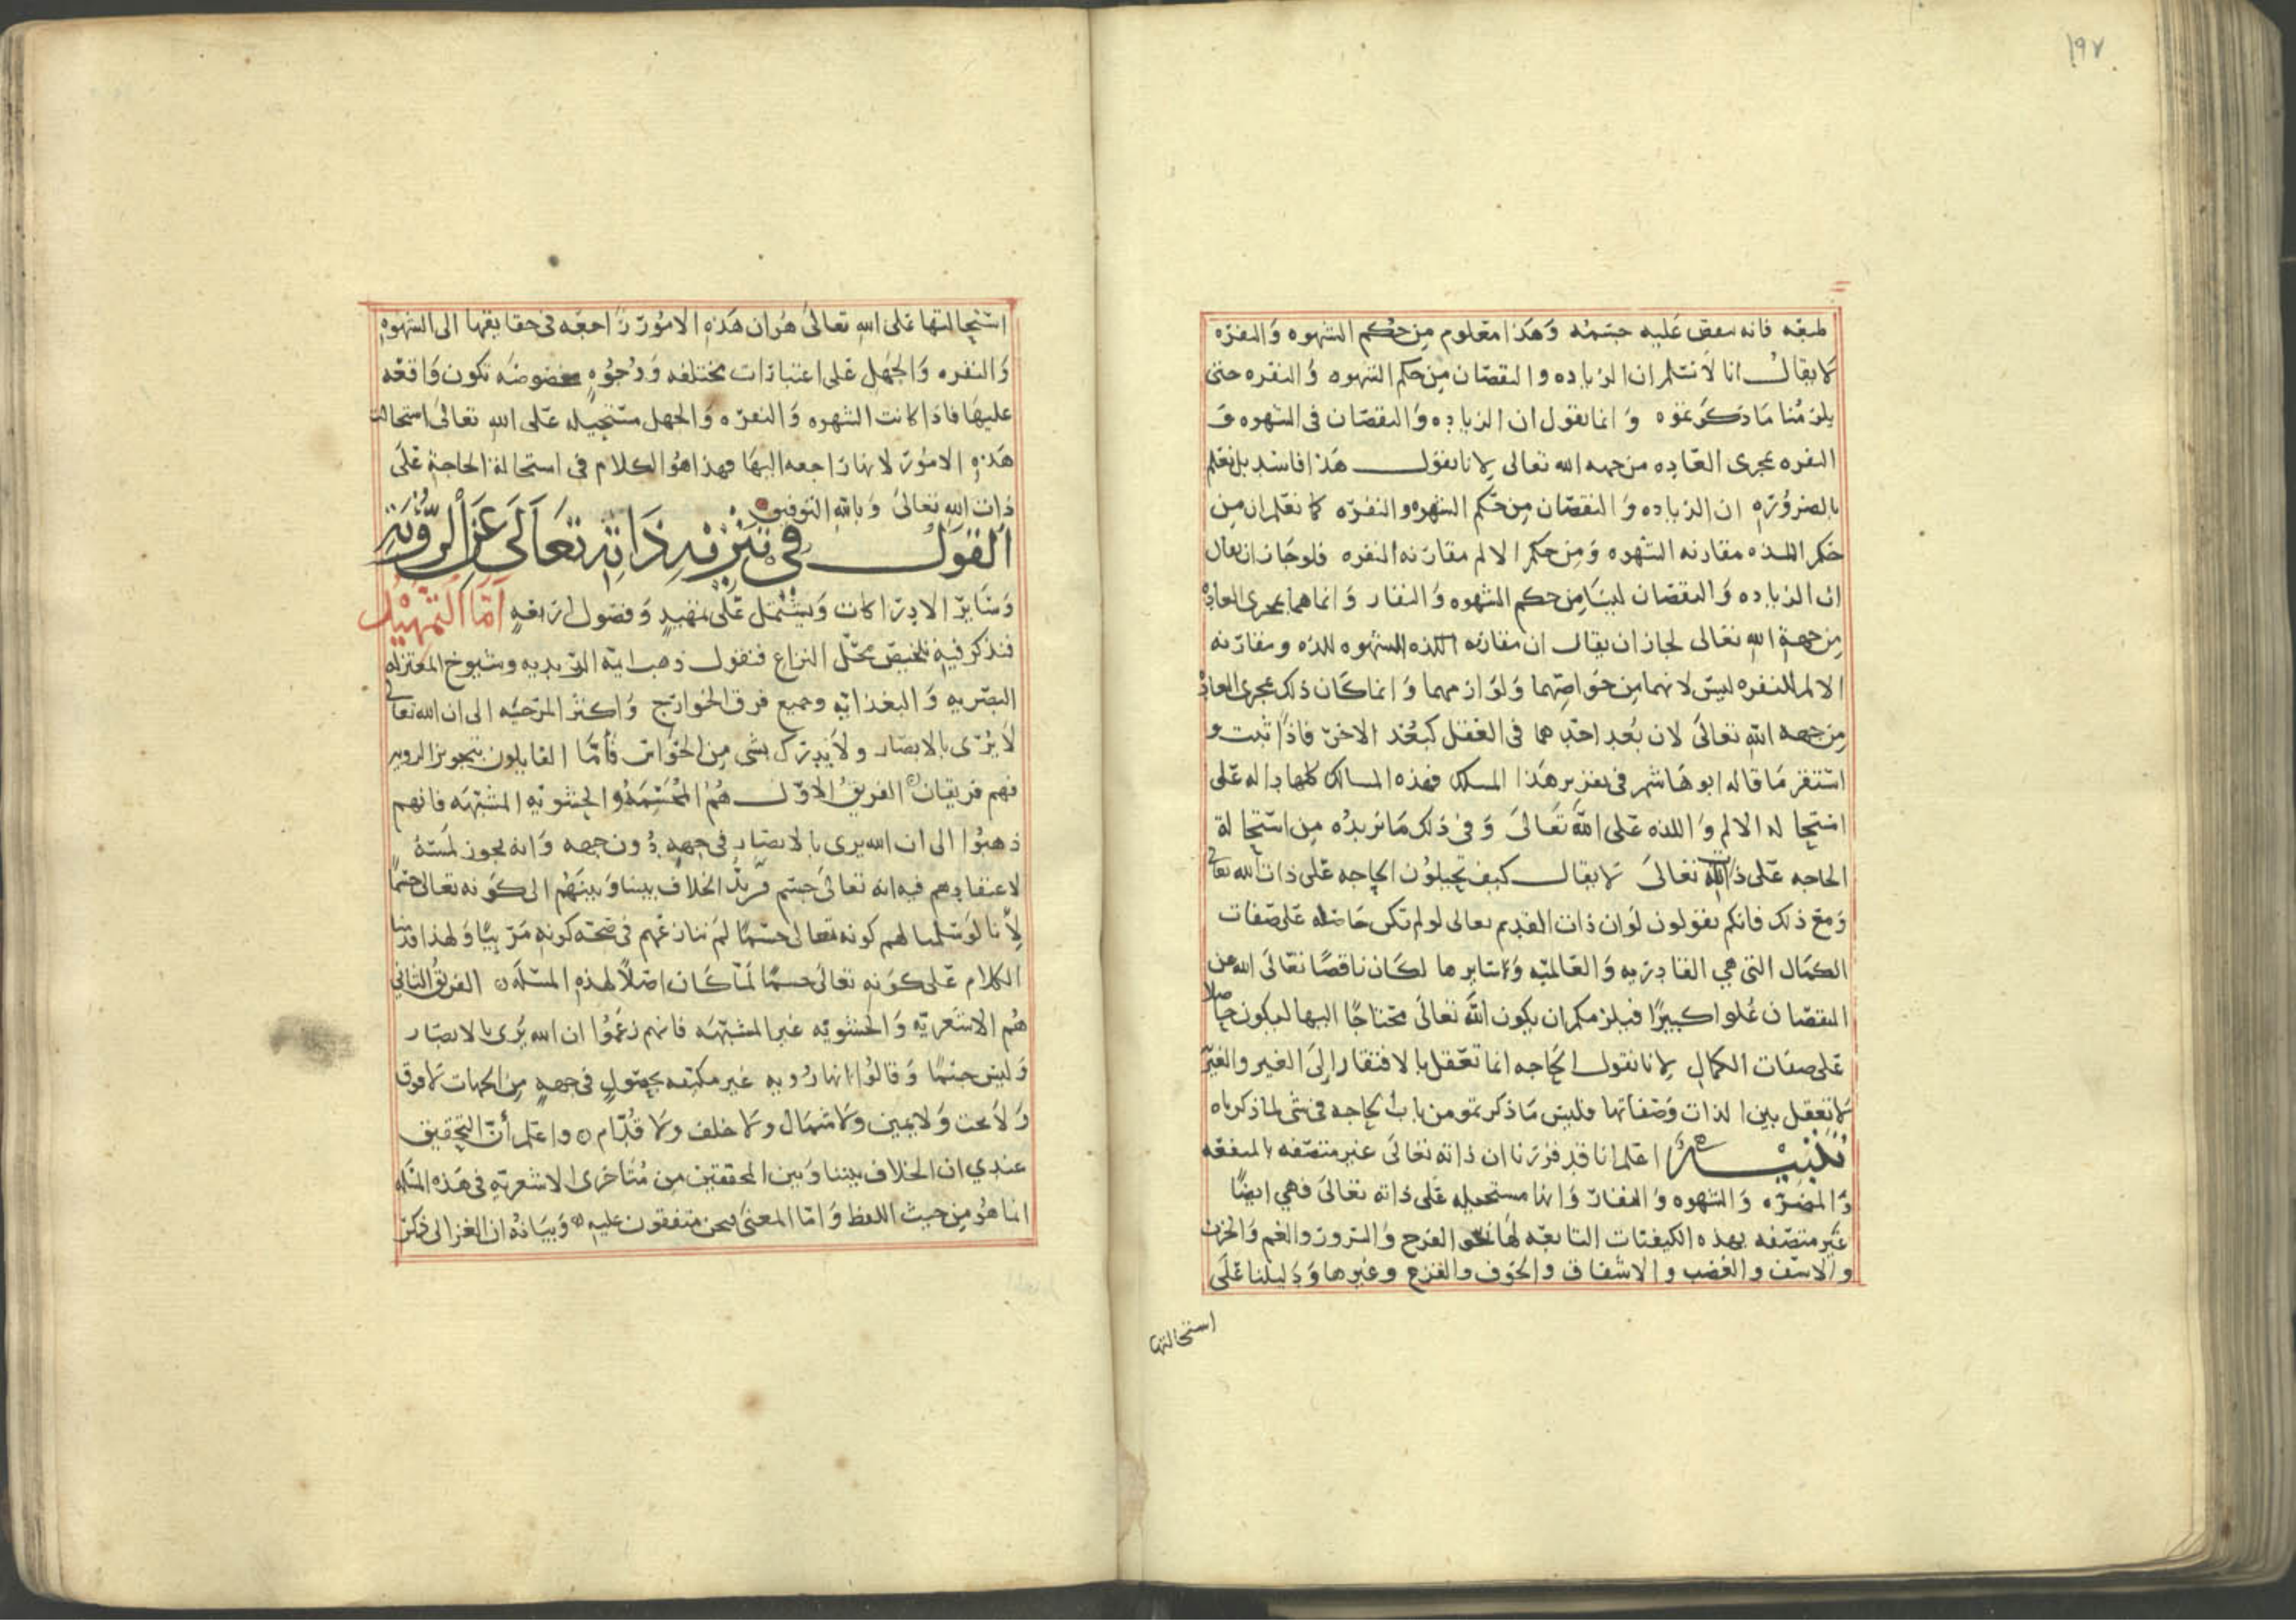 ١٩٧
طبعه فانه ينقص عليه جسمه وهذا معلوم من حكم الشهوه والنفره
لا يقال انا لا نسلم ان الزياده والنقصان من حكم الشهوه والنفره حتى
يلزمنا ما ذكرتموه وانما نقول ان الزياده والنقصان في الشهوه و
النفره بمجرى العاده من جهه الله تعالى لانا نقول هذا فاسد بل نعلم
بالضروره ان الزياده والنقصان من حكم الشهوه والنفره كما نعلم ان من
حكم اللذه مقارنه الشهوه ومن حكم الالم مقارنه النفره فلو جاز ان يقال
ان الزياده والنقصان ليسا من حكم الشهوه والنفار وانما هما بمجرى العاده
من جهة الله تعالى لجاز ان يقال ان مقارنه اللذه للشهوه ومقارنه
الالم للنفره ليس لانهما من خواصهما ولوازمهما وانما كان ذلك بمجرى العاده
من جهه الله تعالى لان بعد احدهما في العقل كبعد الاخر فاذا ثبت و
استقر ما قاله ابو هاشم في تقرير هذا المسلك فهذه المسالك كلها داله على
استحاله الالم واللذه على الله تعالى وفي ذلك ما نريده من استحالة
الحاجه على ذات الله تعالى لا يقال كيف تحيلون الحاجه على ذات الله تعالى
ومع ذلك فانكم تقولون لو ان ذات القديم تعالى لو لم تكن حاصله على صفات
الكمال التي هي القادريه والعالميه وسايرها لكان ناقصا تعالى الله عن
النقصان علوا كبيرا فيلزمكم ان يكون الله تعالى محتاجا اليها ليكون حاصلا
على صفات الكمال لانا نقول الحاجه انما تعقل بالافتقار الى الغير والغير
لا تعقل بين الذات وصفاتها فليس ما ذكرتمو من باب الحاجه في شى لما ذكرناه
تنبيه اعلم انا قد قررنا ان ذاته تعالى غير متصفه بالمنفعه
والمضره والشهوه والنفار وانها مستحيله على ذاته تعالى فهي ايضا
غير متصفه بهذه الكيفيات التابعه لها نحو الفرح والسرور والغم والحزن
والاسف والغضب والاشفاق والخوف والفزع وغيرها ودليلنا على
استحالتها
استحالتها على الله تعالى هو ان هذه الامور راجعه في حقايقها الى الشهوه
والنفره والجهل على اعتبارات مختلفه ووجوه مخصوصه تكون واقعه
عليها فاذا كانت الشهوه والنفره والجهل مستحيله على الله تعالى استحالت
هذه الامور لانها راجعه اليها فهذا هو الكلام في استحالة الحاجة على
ذات الله تعالى وبالله التوفيق
القول في تنزيه ذاته تعالى عن الرؤية
وساير الادراكات ويشتمل على تمهيد وفصول اربعه اما التمهيد
فنذكر فيه تلخيص محل النزاع فنقول ذهب ايمة الزيديه وشيوخ المعتزله
البصريه والبغداديه وجميع فرق الخوارج واكثر المرجيه الى ان الله تعالى
لا يرى بالابصار ولا يدرك بشي من الحواس فاما القايلون بتجويز الرويه
فهم فريقان الفريق الاول هم المجسمه والحشويه المشبهه فانهم
ذهبوا الى ان الله يرى بالابصار في جهه دون جهه وانه يجوز لمسه
لاعتقادهم فيه انه تعالى جسم فرد الخلاف بيننا وبينهم الى كونه تعالى جسما
لانا لو سلمنا لهم كونه تعالى جسما لم ننازعهم في صحه كونه مرييا ولهذا قدمنا
الكلام على كونه تعالى جسما لما كان اصلا لهذه المسله الفريق الثاني
هم الاشعريه والحشويه غير المشبهه فانهم زعموا ان الله يرى بالابصار
وليس جسما وقالوا انها رويه غير مكيفه بحصول في جهه من الجهات لا فوق
ولا تحت ولا يمين ولا شمال ولا خلف ولا قدام واعلم أن التحقيق
عندي ان الخلاف بيننا وبين المحققين من متاخرى الاشعريه في هذه المسله
انما هو من حيث اللفظ واما المعنى فنحن متفقون عليه وبيانه ان الغزالي ذكر